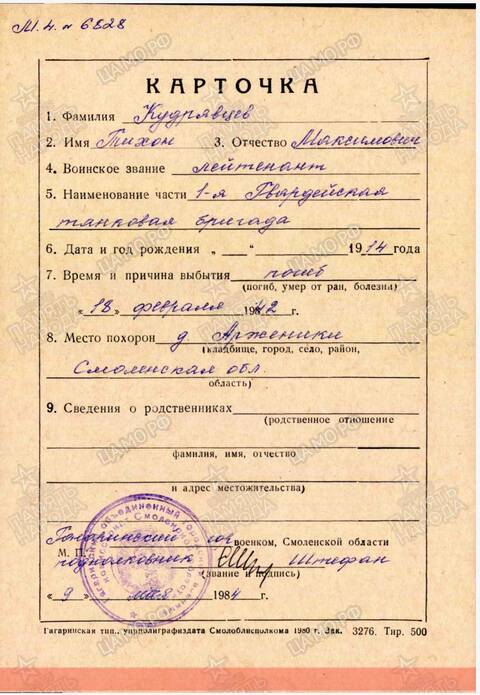 М.н. № 6828
КАРТОЧКА
1. Фамилия Кудрявцев
2. Имя Тихон 3. Отчество Максимович
4. Воинское звание лейтенант
5. Наименование части 1-я Гвардейская
танковая бригада
6. Дата и год рождения „ “ 1914 года
7. Время и причина выбытия погиб
(погиб, умер от ран, болезни)
„18„ февраля 1942 г.
8. Место похорон д. Арженики
(кладбище, город, село, район,
Смоленская обл.
область)
9. Сведения о родственниках
(родственное отношение
фамилия, имя, отчество
и адрес местожительства)
Гагаринский военком, Смоленской области
М. П. подполковник Штефан
(звание и подпись)
„9 „ мая 1984 г.
Гагаринская тип., упрполиграфиздата Смолоблисполкома 1980 г. Зак. 3276. Тир. 500
ЦАМО РФ
ПАМЯТЬ НАРОДА